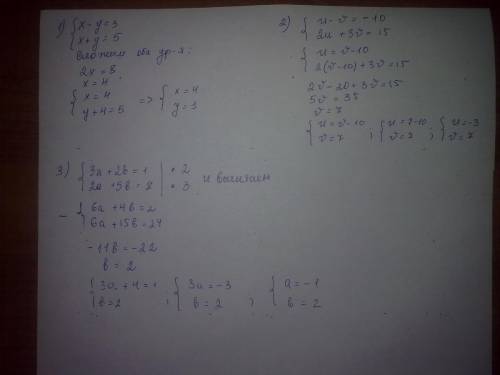 1) { x - y = 3
x + y = 5
сложим оба ур-я:
2x = 8
x = 4
{ x = 4
y + 4 = 5 => { x = 4
y = 1
2) { u - v = -10
2u + 3v = 15
{ u = v - 10
2(v - 10) + 3v = 15
2v - 20 + 3v = 15
5v = 35
v = 7
{ u = v - 10
v = 7 ; { u = 7 - 10
v = 7 ; { u = -3
v = 7
3) { 3a + 2b = 1 | • 2
2a + 5b = 8 | • 3 и вычитаем
- { 6a + 4b = 2
6a + 15b = 24
-11b = -22
b = 2
{ 3a + 4 = 1
b = 2 ; { 3a = -3
b = 2 ; { a = -1
b = 2